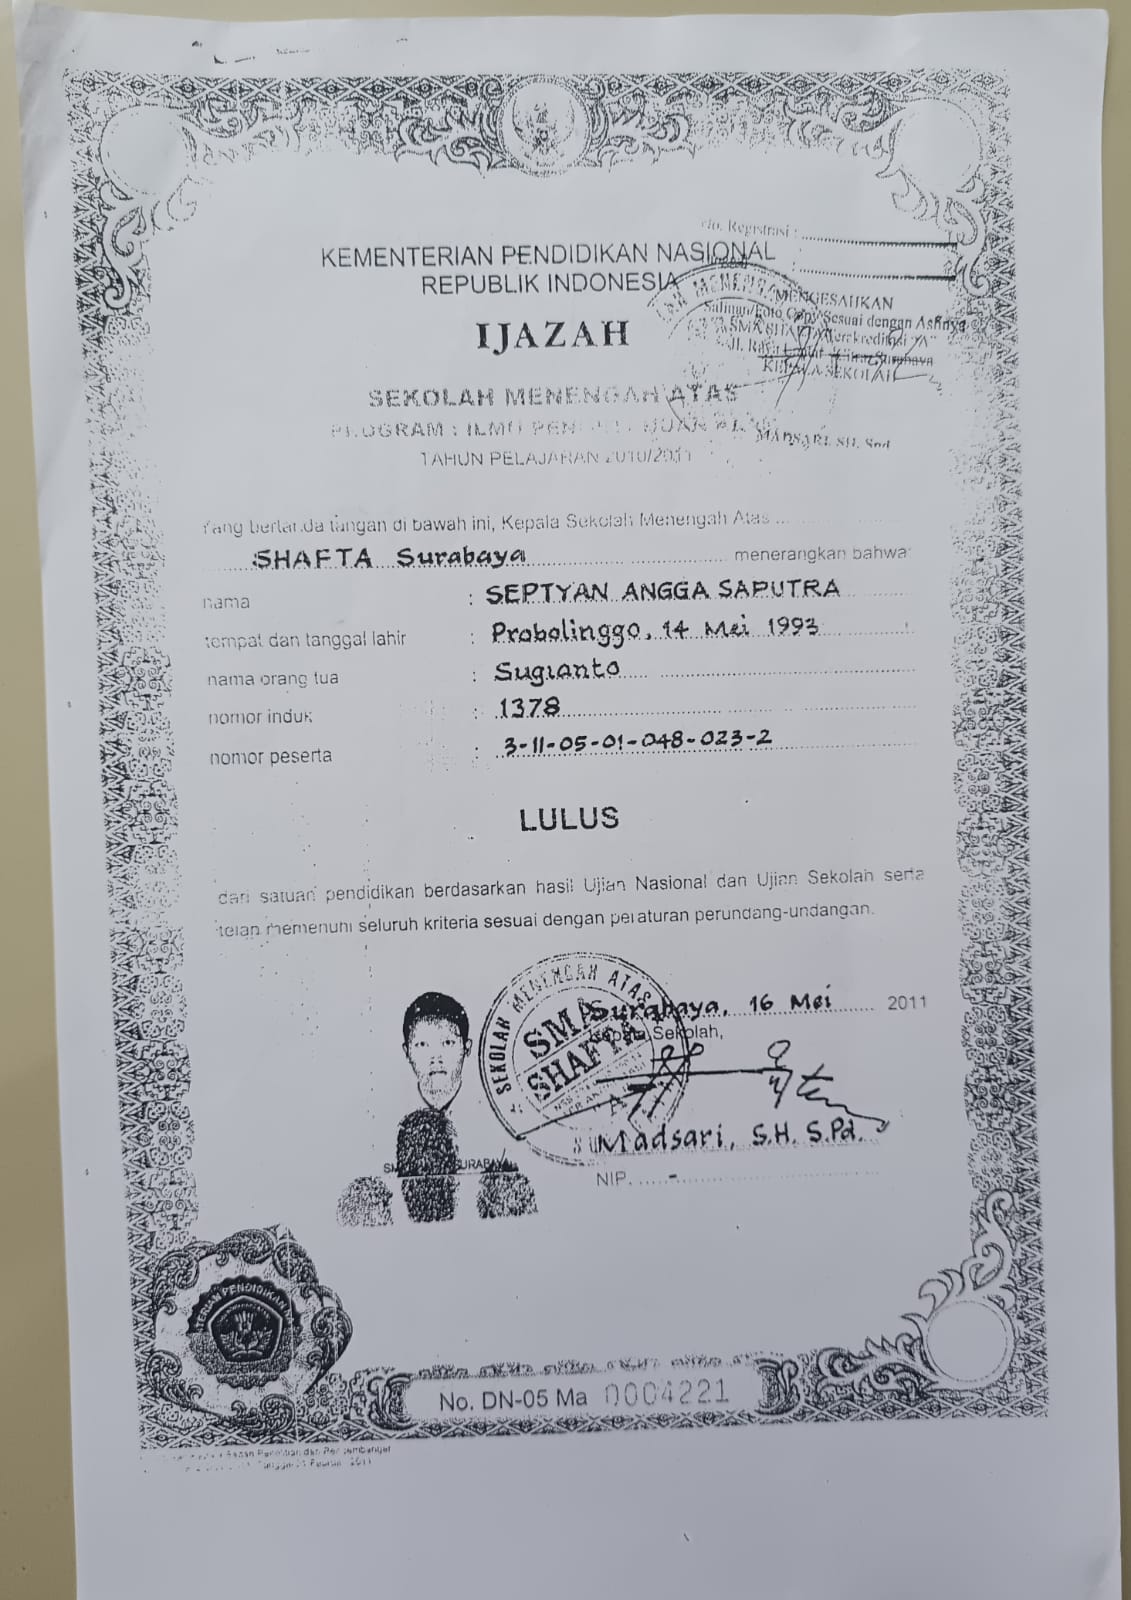 No. Registrasi :
KEMENTERIAN PENDIDIKAN NASIONAL
REPUBLIK INDONESIA
MENGESAHKAN
Salinan/Foto Copy Sesuai dengan Aslinya
IJAZAH
KEPALA SEKOLAH
SEKOLAH MENENGAH ATAS
PROGRAM : ILMU
MADSARI, SH,
TAHUN PELAJARAN 2010/2011
Yang bertanda tangan di bawah ini, Kepala Sekolah Menengah Atas
SHAFTA Surabaya menerangkan bahwa:
nama : SEPTYAN ANGGA SAPUTRA
tempat dan tanggal lahir : Probolinggo, 14 Mei 1993
nama orang tua : Sugianto
nomor induk : 1378
nomor peserta : 3-11-05-01-048-023-2
LULUS
dari satuan pendidikan berdasarkan hasil Ujian Nasional dan Ujian Sekolah serta
telah memenuhi seluruh kriteria sesuai dengan peraturan perundang-undangan.
SEKOLAH MENENGAH ATAS
SMA
SHAFTA
Surabaya, 16 Mei 2011
Kepala Sekolah,
Madsari, S.H. S.Pd.
NIP. -
No. DN-05 Ma 0004221